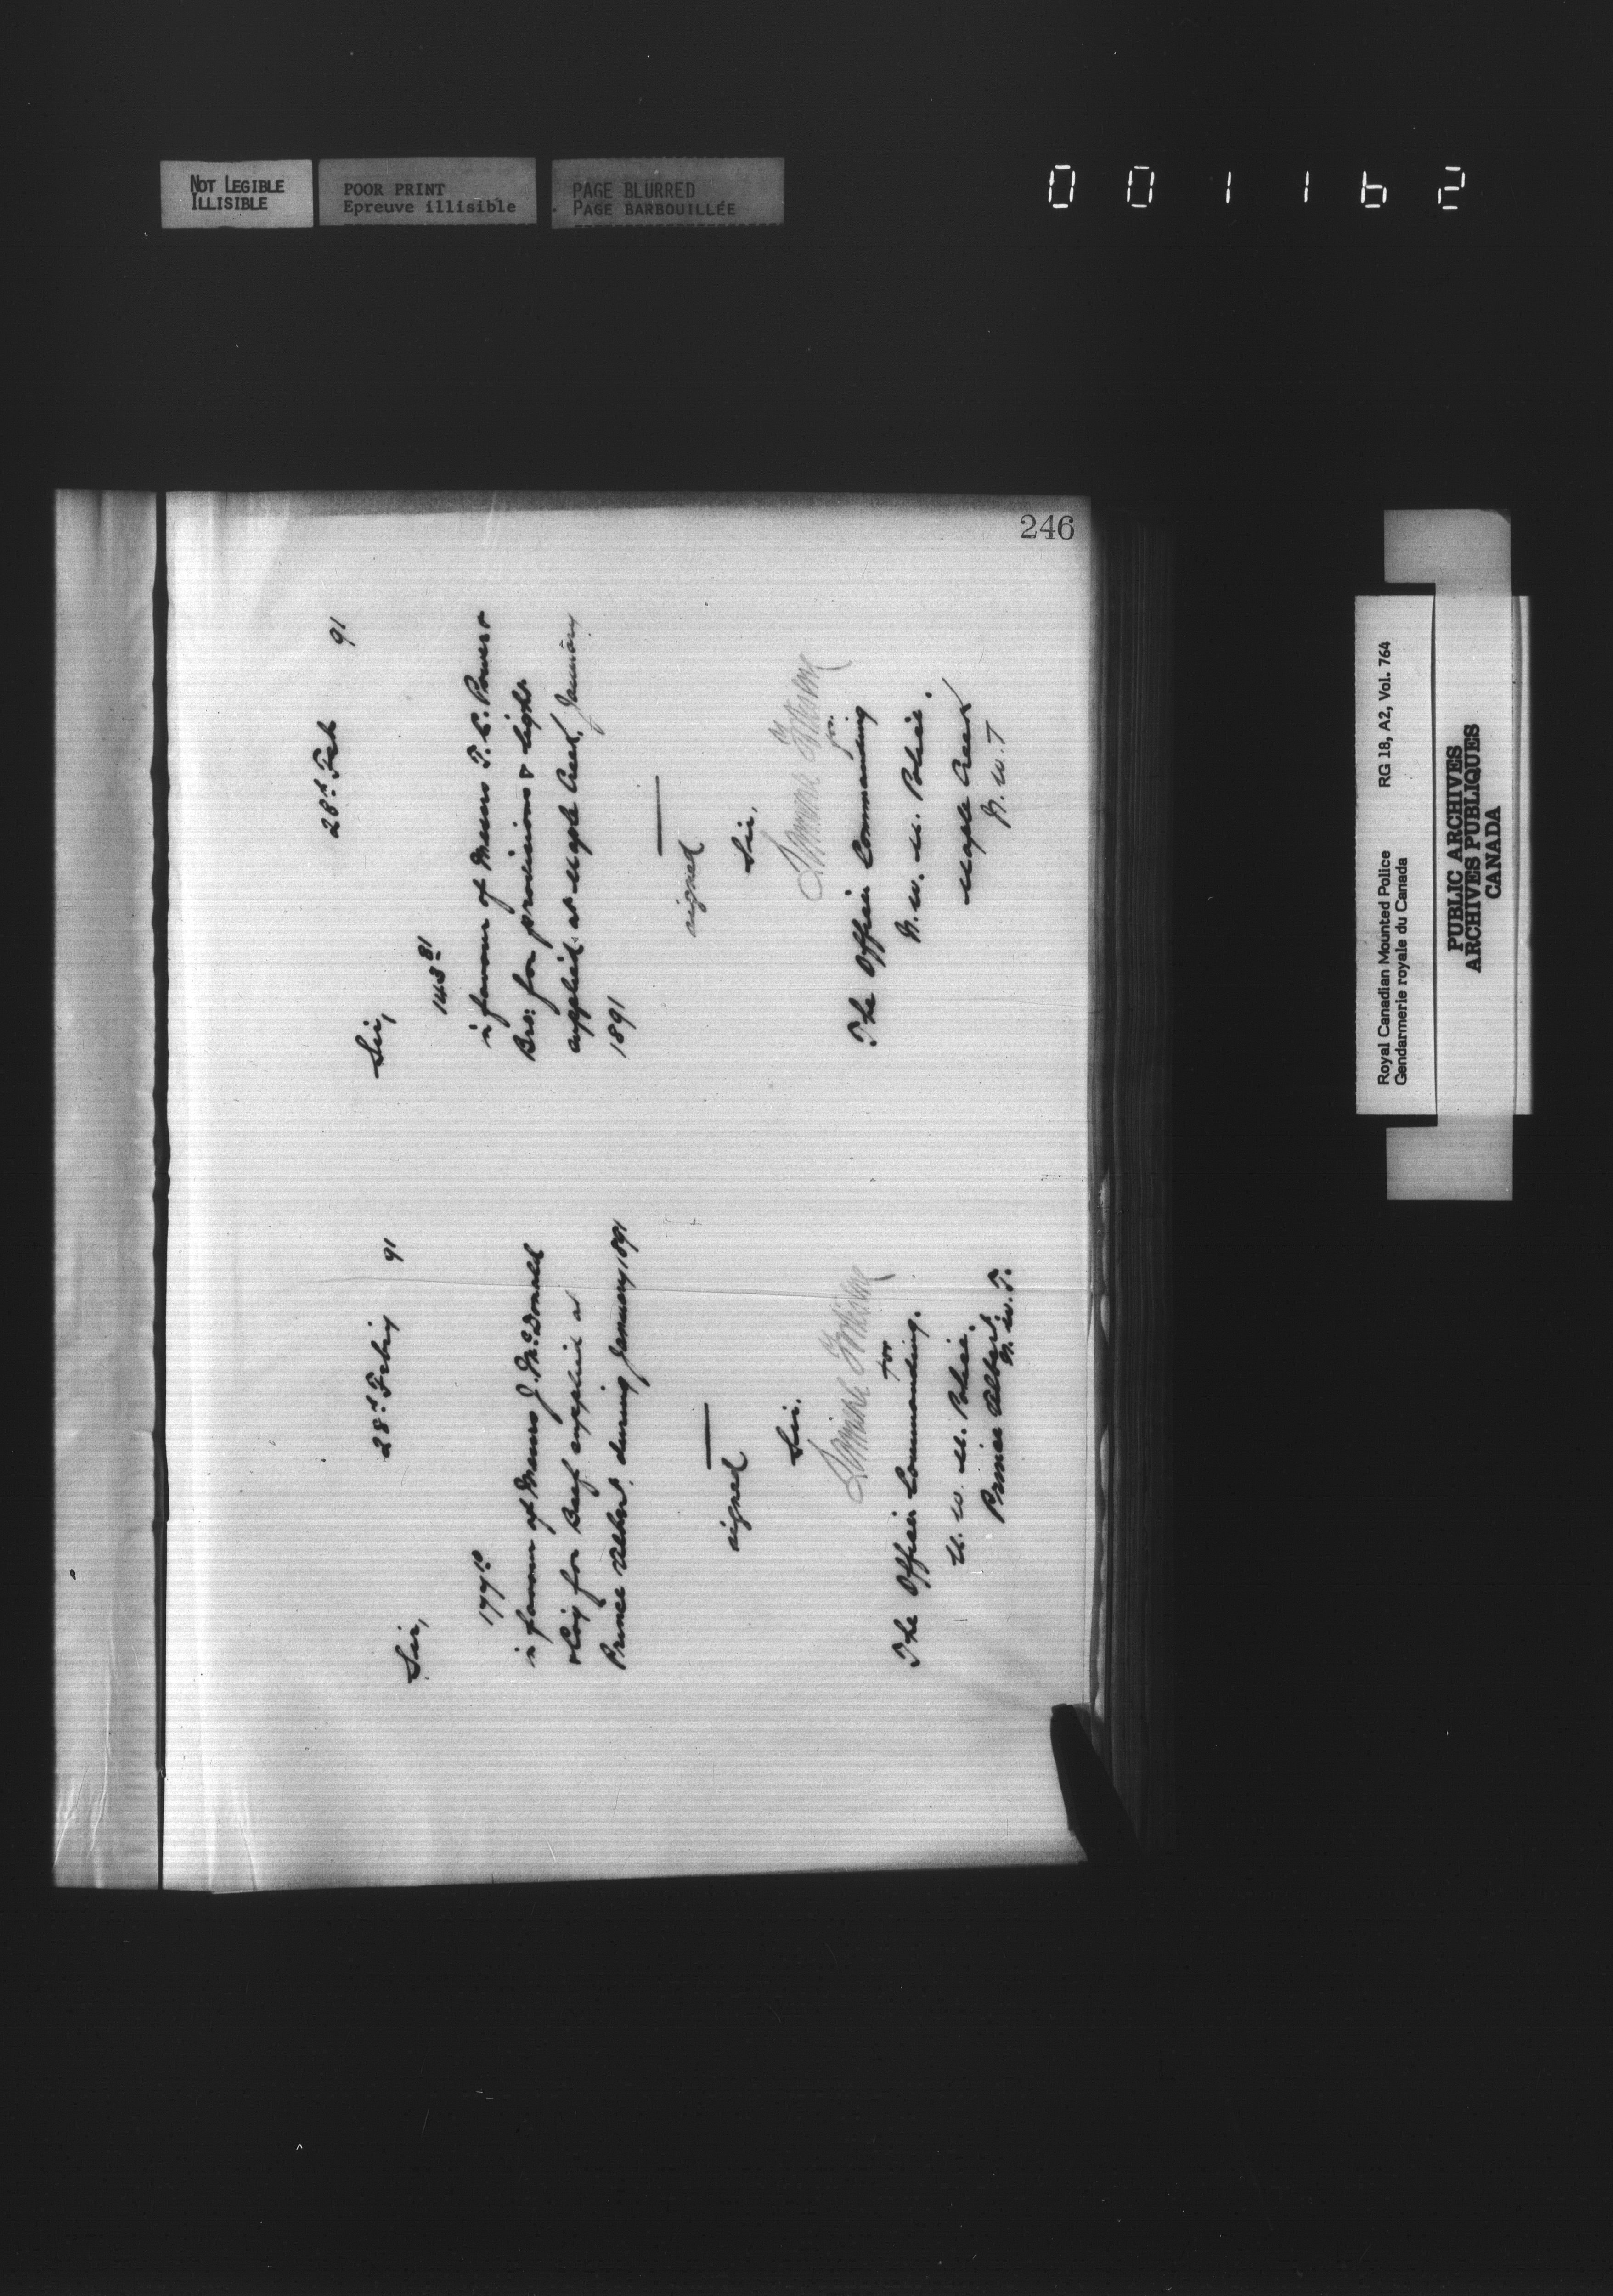 NOT LEGIBLE
ILLISIBLE
POOR PRINT
Epreuve illisible
PAGE BLURRED
PAGE BARBOUILLÉE
001162
246
28th Feby 91
Sir,
177 10
in favour of Messrs J. McDonald
& Coy for Beef supplied at
Prince Albert, during January 1891
signed
Sir.
for
The Officer Commanding.
N. W. M. Police.
Prince Albert.
N. W. T.
28th Feb 91
Sir,
143 81
in favour of Messrs T. C. Power &
Bro: for provisions & light
supplied at Maple Creek, January
1891
signed
Sir.
for.
The Officer Commanding
N. W. M. Police.
Maple Creek
N. W. T
Royal Canadian Mounted Police RG 18, A2, Vol. 764
Gendarmerie royale du Canada
PUBLIC ARCHIVES
ARCHIVES PUBLIQUES
CANADA